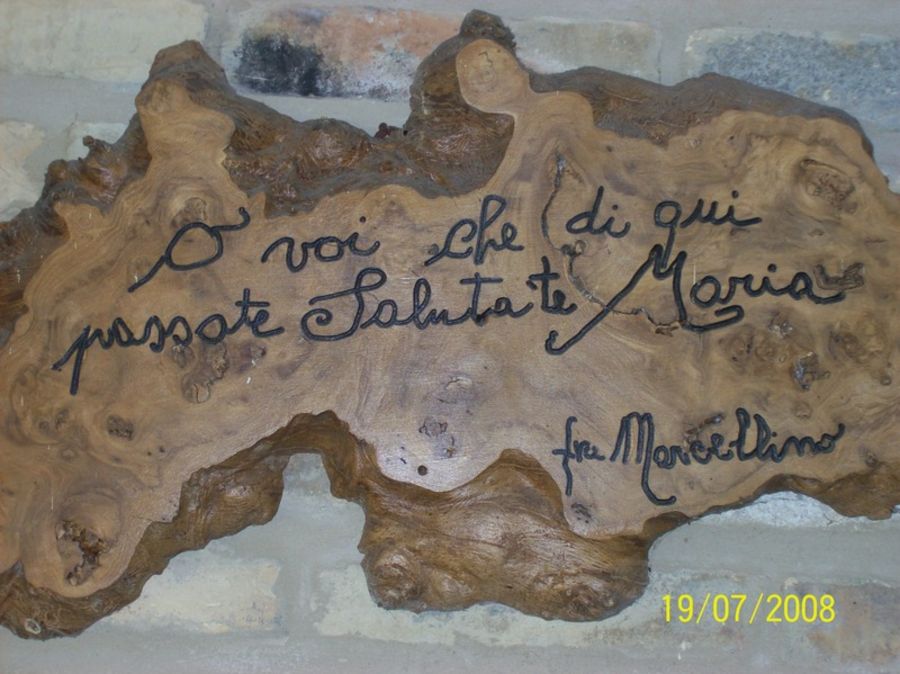 O voi che di qui
passate Saluta te Maria
fra Marcellino
19/07/2008